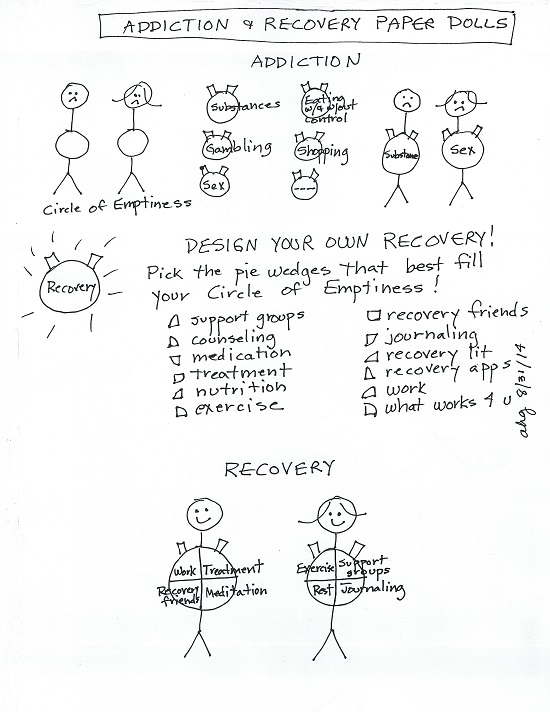 ADDICTION & RECOVERY PAPER DOLLS
ADDICTION
Substances
Eating w/ & w/out control
Gambling
Shopping
Sex
----
Substance
Sex
Circle of Emptiness
Recovery
DESIGN YOUR OWN RECOVERY!
Pick the pie wedges that best fill
your Circle of Emptiness!
support groups
counseling
medication
treatment
nutrition
exercise
recovery friends
journaling
recovery lit
recovery apps
work
what works 4 u
ahg 8/31/14
RECOVERY
Work
Treatment
Recovery friends
Meditation
Exercise
Support groups
Rest
Journaling